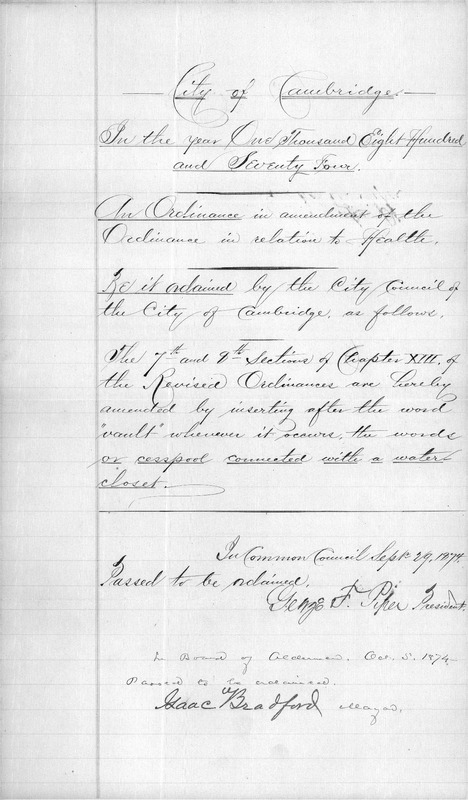 City of Cambridge
In the year One Thousand Eight Hundred
and Seventy Four.
An Ordinance in amendment of the
Ordinance in relation to Health.
Be it ordained by the City Council of
the City of Cambridge, as follows.
The 7th and 8th Sections of Chapter XIII. of
the Revised Ordinances are hereby
amended by inserting after the word
"vault" whenever it occurs, the words
or cesspool connected with a water
closet.
In Common Council Sept. 29, 1874.
Passed to be ordained.
George F. Piper President.
In Board of Aldermen. Oct. 5. 1874.
Passed to be ordained.
Isaac Bradford Mayor.